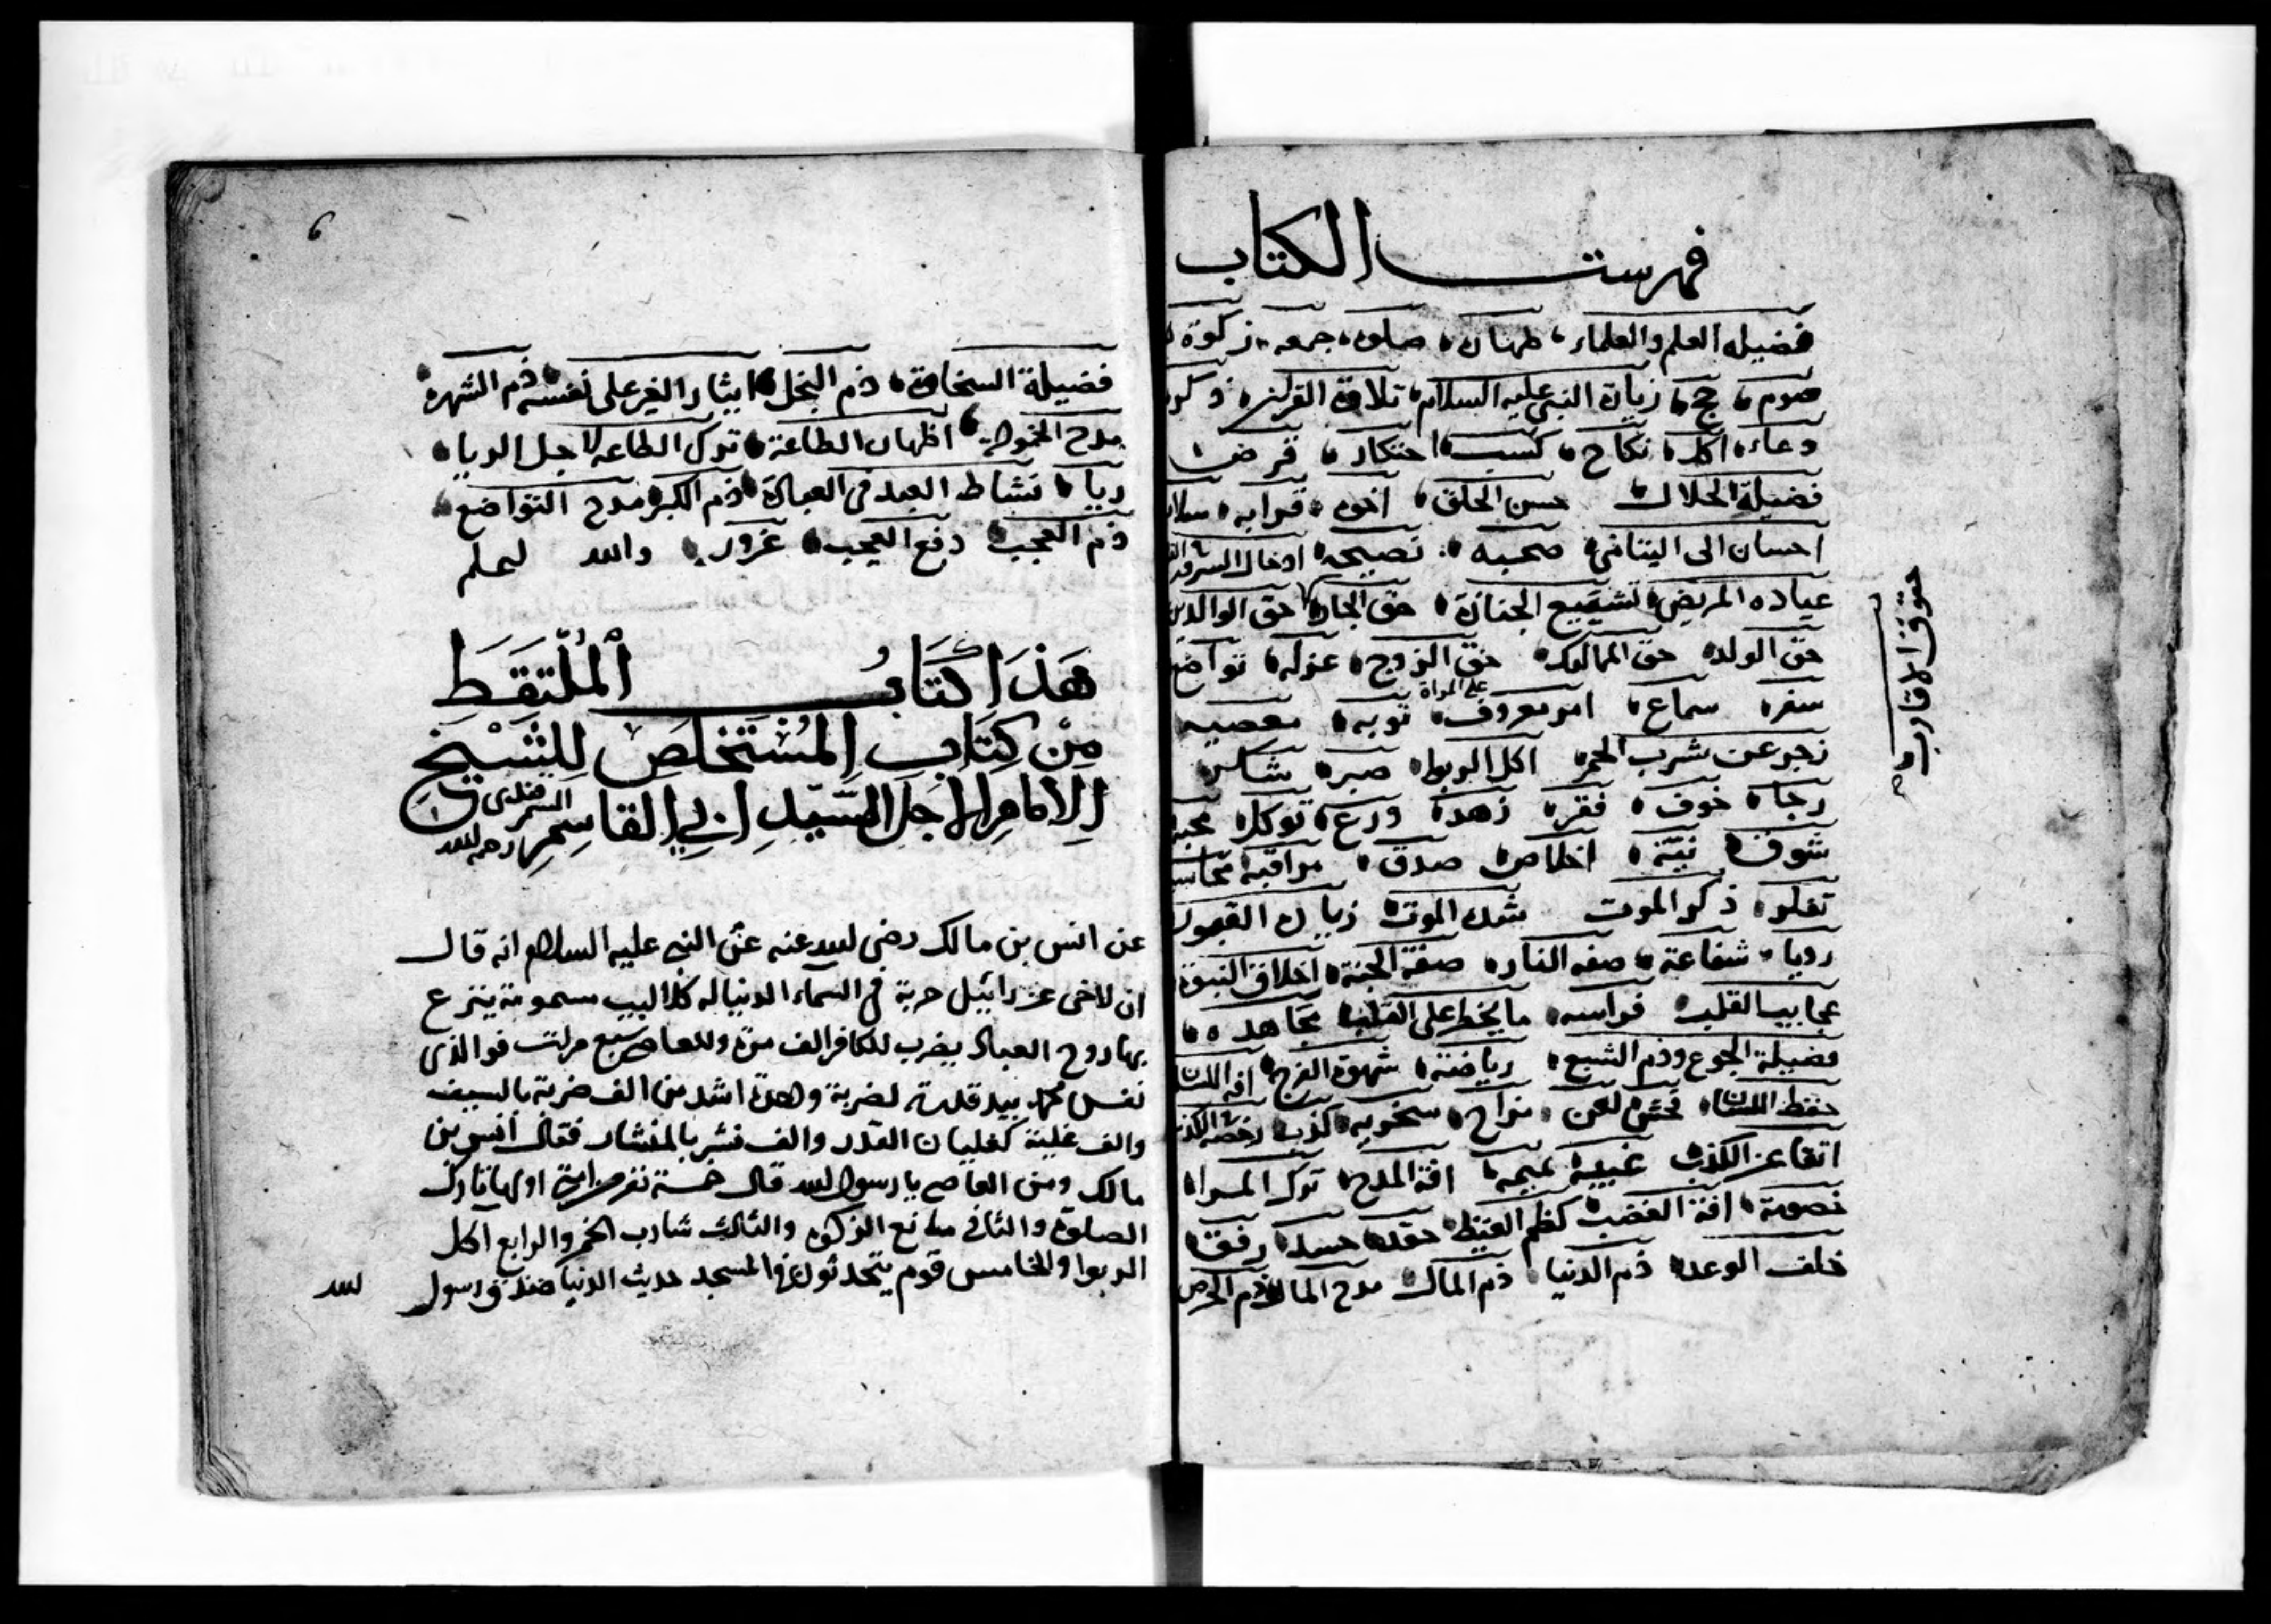 فهرست الكتاب
فضيله العلم والعلماء طهارة صلوة جمعه زكوة
صوم حج زيارة النبي عليه السلام تلاوة القرآن ذكر
دعاء اكل نكاح كسب احتكار قرض
فضيلة الحلال حسن الخلق اخوة قرابه سلام
احسان الى اليتامى صحبه نصيحه ادخال السرور
عياده المريض تشييع الجنازة حق الجار حق الوالدين
حق الولد حق المماليك حق الزوج عزله تواضع
على المراة
سفر سماع امر معروف توبه معصيه
زجر عن شرب الخمر اكل الربوا صبر شكر
رجا خوف فقر زهد ورع توكل محبة
شوق نيّة اخلاص صدق مراقبة محاسبة
تفكر ذكر الموت شدة الموت زيارة القبور
رويا شفاعة صفه النار صفة الجنة اخلاق النبوة
عجايب القلب فراسه ما يخطر على القلب مجاهده
فضيلة الجوع وذم الشبع رياضة شهوة الفرج افة اللسان
حفظ اللسان فحش لعن مزاح سخريه كذب رخصة الكذب
اتقا عن الكذب غيبه نميمه افة المدح ترك المراء
خصومة افة الغضب كظم الغيظ حقد حسد رفق
خلف الوعد ذم الدنيا ذم المال مدح المال ذم الحرص
حقوق الاقارب
6
فضيلة السخاوة ذم البخل ايثار الغير على نفسه ذم الشهرة
مدح الخمولة اظهار الطاعة ترك الطاعه لاجل الريا
ريا نشاط العبد فى العبادة ذم الكبر مدح التواضع
ذم العجب دفع العجب غرور والله اعلم
هَذَا كتَابُ المُلْتَقَطِ
مِنْ كِتَابِ المُسْتَخْلَصِ لِلشَّيْخِ
الامام الاجل السَّيّدِ ابي القاسِمِ السمرقندى رحمه الله
عن انس بن مالك رضى الله عنه عن النبى عليه السلام انه قال
ان لاخى عزرائيل حربة في السماء الدنيا له كلاليب مسمومة ينزع
بها روح العباد يضرب للكافر الف مرة وللعاصى سبع مرات فوالذى
نفس محمد بيد قدرته لضربة واحدة اشد من الف ضربة بالسيف
والف غلية كغليان القدر والف نشر بالمنشار فقال انس بن
مالك ومن العاصى يا رسول الله قال خمسة نفر من امتى اولها تارك
الصلوة والثانى مانع الزكوة والثالث شارب الخمر والرابع اكل
الربوا والخامس قوم يتحدثون في المسجد حديث الدنيا صدق رسول الله